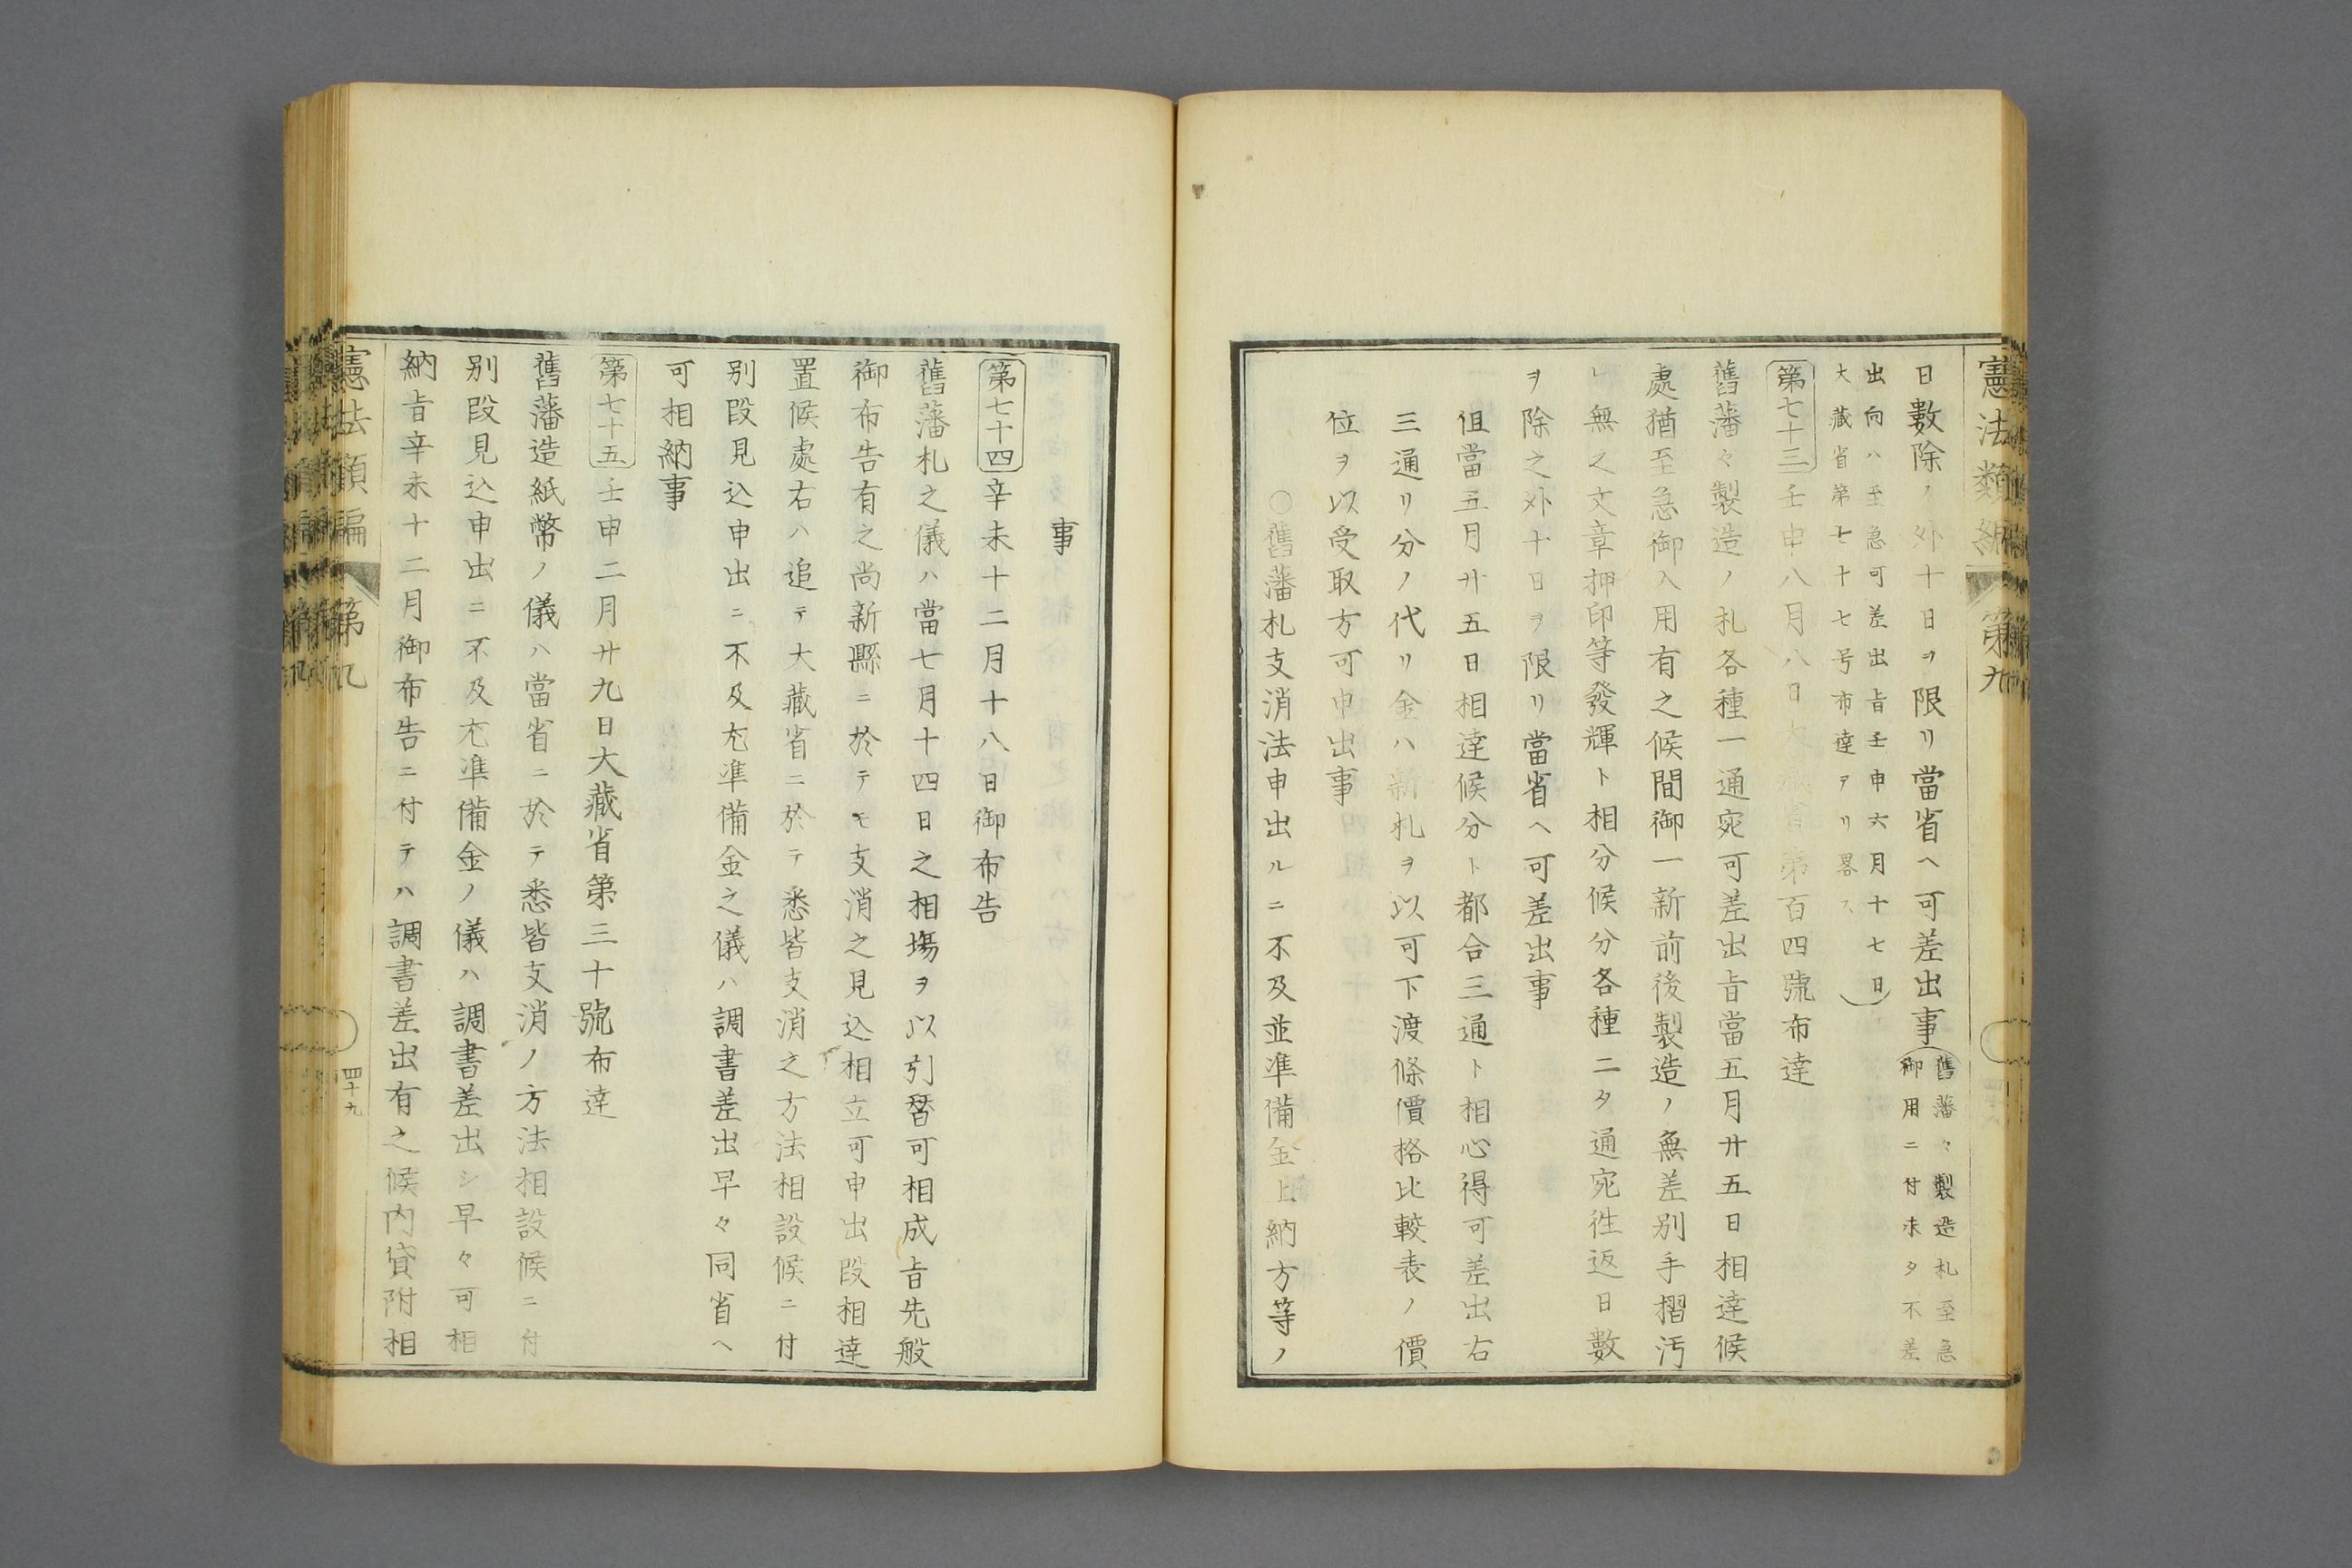 憲法類編 第九
日數除ノ外十日ヲ限リ當省ヘ可差出事(舊藩々製造札至急
御用ニ付未タ不差
出向ハ至急可差出旨壬申六月十七日)
大藏省第七十七号布達アリ畧ス
第七十三 壬申八月八日大藏省第百四號布達
舊藩々製造ノ札各種一通宛可差出旨當五月廿五日相達候
處猶至急御入用有之候間御一新前後製造ノ無差別手摺汚
レ無之文章押印等發輝ト相分候分各種二タ通宛徃返日數
ヲ除之外十日ヲ限リ當省ヘ可差出事
但當五月廿五日相達候分ト都合三通ト相心得可差出右
三通リ分ノ代リ金ハ新札ヲ以可下渡條價格比較表ノ價
位ヲ以受取方可申出事
○舊藩札支消法申出ルニ不及並準備金上納方等ノ
事
第七十四 辛未十二月十八日御布告
舊藩札之儀ハ當七月十四日之相塲ヲ以引替可相成旨先般
御布告有之尚新縣ニ於テモ支消之見込相立可申出段相達
置候處右ハ追テ大藏省ニ於テ悉皆支消之方法相設候ニ付
別段見込申出ニ不及尤準備金之儀ハ調書差出早々同省ヘ
可相納事
第七十五 壬申二月廿九日大藏省第三十號布達
舊藩造紙幣ノ儀ハ當省ニ於テ悉皆支消ノ方法相設候ニ付
別段見込申出ニ不及尤準備金ノ儀ハ調書差出シ早々可相
納旨辛未十二月御布告ニ付テハ調書差出有之候内貸附相
憲法類編 第九
四十九